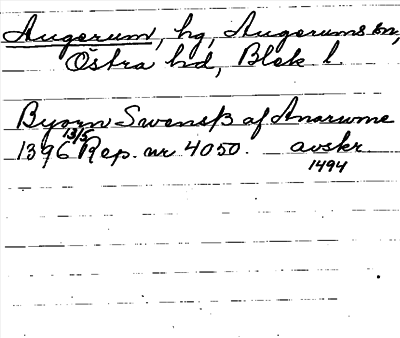 Augerum, hg, Augerums sn,
Östra hd, Blek l.
Byorn Swenß af Anarwme
1396 13/5 Rep. nr 4050. avskr
1494